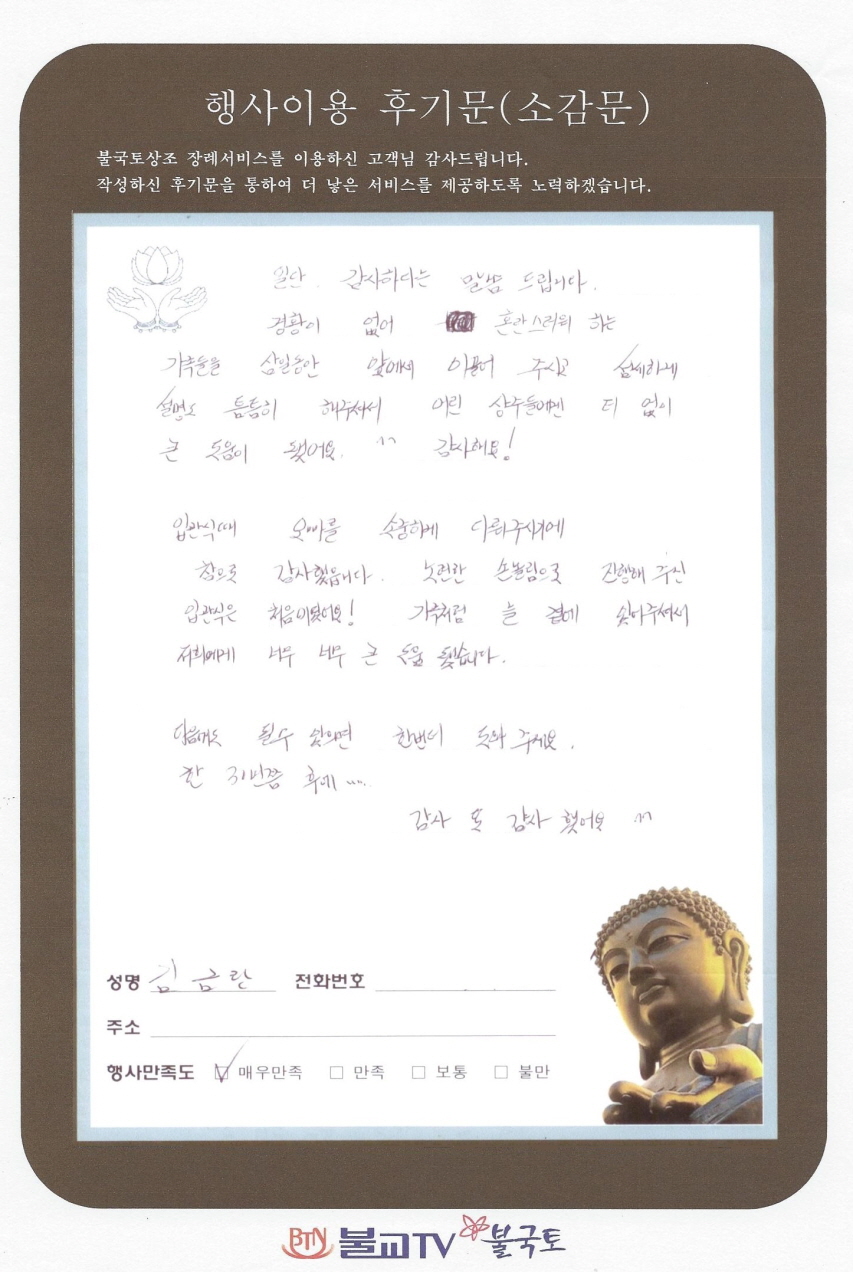 행사이용 후기문(소감문)
불국토상조 장례서비스를 이용하신 고객님 감사드립니다.
작성하신 후기문을 통하여 더 낳은 서비스를 제공하도록 노력하겠습니다.
일단. 감사하다는 말씀 드립니다.
경황이 없어 혼란스러워 하는
가족들을 삼일동안 앞에서 이끌어 주시고 섬세하게
설명도 틈틈히 해주셔서 어린 상주들에겐 더 없이
큰 도움이 됐어요. ^^ 감사해요!
입관식때 오빠를 소중하게 다뤄주시기에
참으로 감사했습니다. 노련한 손놀림으로 진행해 주신
입관식은 처음이었어요! 가족처럼 늘 곁에 있어주셔서
저희에게 너무 너무 큰 도움 됐습니다.
다음에도 될수 있으면 한번더 도와 주세요.
한 30년쯤 후에 .....
감사 또 감사 했어요 ^^
성명 김금란 전화번호
주소
행사만족도 ☑ 매우만족 □ 만족 □ 보통 □ 불만
BTN 불교TV 불국토